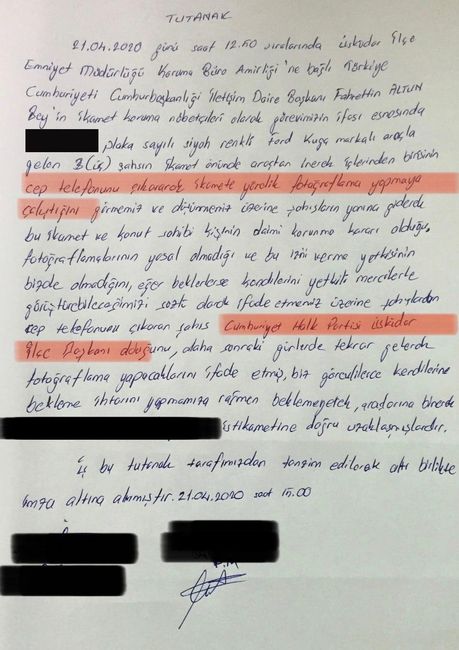 TUTANAK
21.04.2020 günü saat 12.50 sıralarında Üsküdar İlçe
Emniyet Müdürlüğü Koruma Büro Amirliği'ne bağlı Türkiye
Cumhuriyeti Cumhurbaşkanlığı İletişim Daire Başkanı Fahrettin ALTUN
Bey'in ikamet koruma nöbetçileri olarak görevimizin ifası esnasında
plaka sayılı siyah renkli Ford Kuga markalı araçla
gelen 3(üç) şahsın ikamet önünde araçtan inerek içlerinden birisinin
cep telefonunu çıkararak ikamete yönelik fotoğraflama yapmaya
çalıştığını görmemiz ve düşünmemiz üzerine şahısların yanına giderek
bu ikamet ve konut sahibi kişinin daimi korunma kararı olduğu,
fotoğraflamalarının yasal olmadığı ve bu izni verme yetkisinin
bizde olmadığını, eğer beklerlerse kendilerini yetkili mercilerle
görüştürebileceğimizi sözlü olarak ifade etmemiz üzerine şahıslardan
cep telefonunu çıkaran şahıs Cumhuriyet Halk Partisi Üsküdar
İlçe Başkanı olduğunu, daha sonraki günlerde tekrar gelerek
fotoğraflama yapacaklarını ifade etmiş, biz görevlilerce kendilerine
bekleme ihtarını yapmamıza rağmen beklemeyerek, araçlarına binerek
istikametine doğru uzaklaşmışlardır.
İş bu tutanak tarafımızdan tanzim edilerek altı birlikte
imza altına alınmıştır. 21.04.2020 saat 15.00